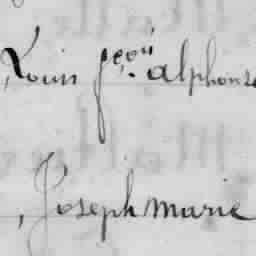 Louis alphonse
, Joseph marie